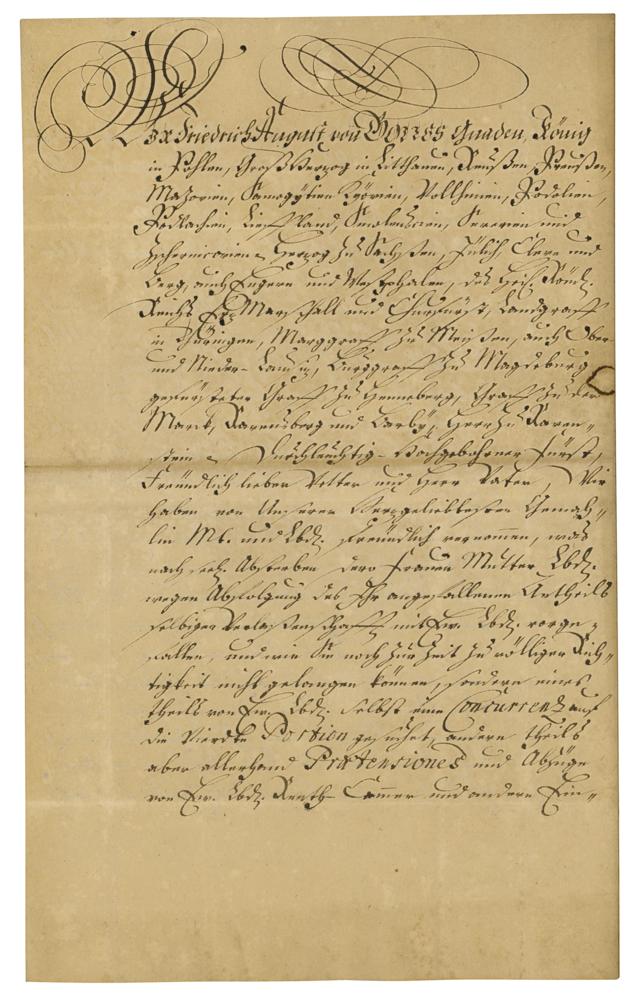 Wir Friedrich August von GOTTES Gnaden, König
in Pohlen, Groß Herzog in Litthauen, Reußen, Preußen,
Mazovien, Samogytien Kyovien, Vollhinien, Podolien,
Podlachien, Lieffland, Smolenscien, Severien und
Zschernicovien Herzog zu Sachßen, Jülich, Cleve und
Berg, auch Engern und Westphalen, des Heil. Röm.
Reichs Erz Marschall und Churfürst, Landgraff
in Thüringen, Marggraff zu Meißen, auch Ober
und Nieder-Lausiz, Burggraff zu Magdeburg
gefürsteter Graff zu Henneberg, Graff zu der
Marck, Ravensberg und Barby, Herr zu Raven„
stein Durchleuchtig-Hochgebohrner Fürst,
Freundlich lieber Vetter und Herr Vater, Wir
haben von Unserer Herzgeliebtesten Gemah„
lin Mt. und Lbd. freundlich vernommen, was
nach seel. Absterben dero Frauen Mutter Lbd.
wegen Abfolgung des Ihr angefallenen Antheils
selbiger Verlaßenschafft mit Ew. Lbd. vorge„
fallen, und wie Sie noch zur Zeit zu völliger Rich„
tigkeit nicht gelangen können, sondern eines
theils von Ew. Lbd. selbst eine Concurrenz auf
die Vierdte Portion gesuchet, andern theils
aber allerhand Prætensiones und Abzüge
von Ew. Lbd. Renth-Cammer und andere Ein„